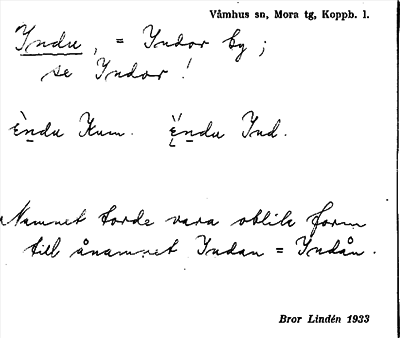 Våmhus sn, Mora tg, Koppb. l.
Yndu, = Yndor by;
se Yndor!
èndu Kum. ę̈ndu Ynd.
Namnet torde vara oblik form
till ånamnet Yndan = Yndån.
Bror Lindén 1933